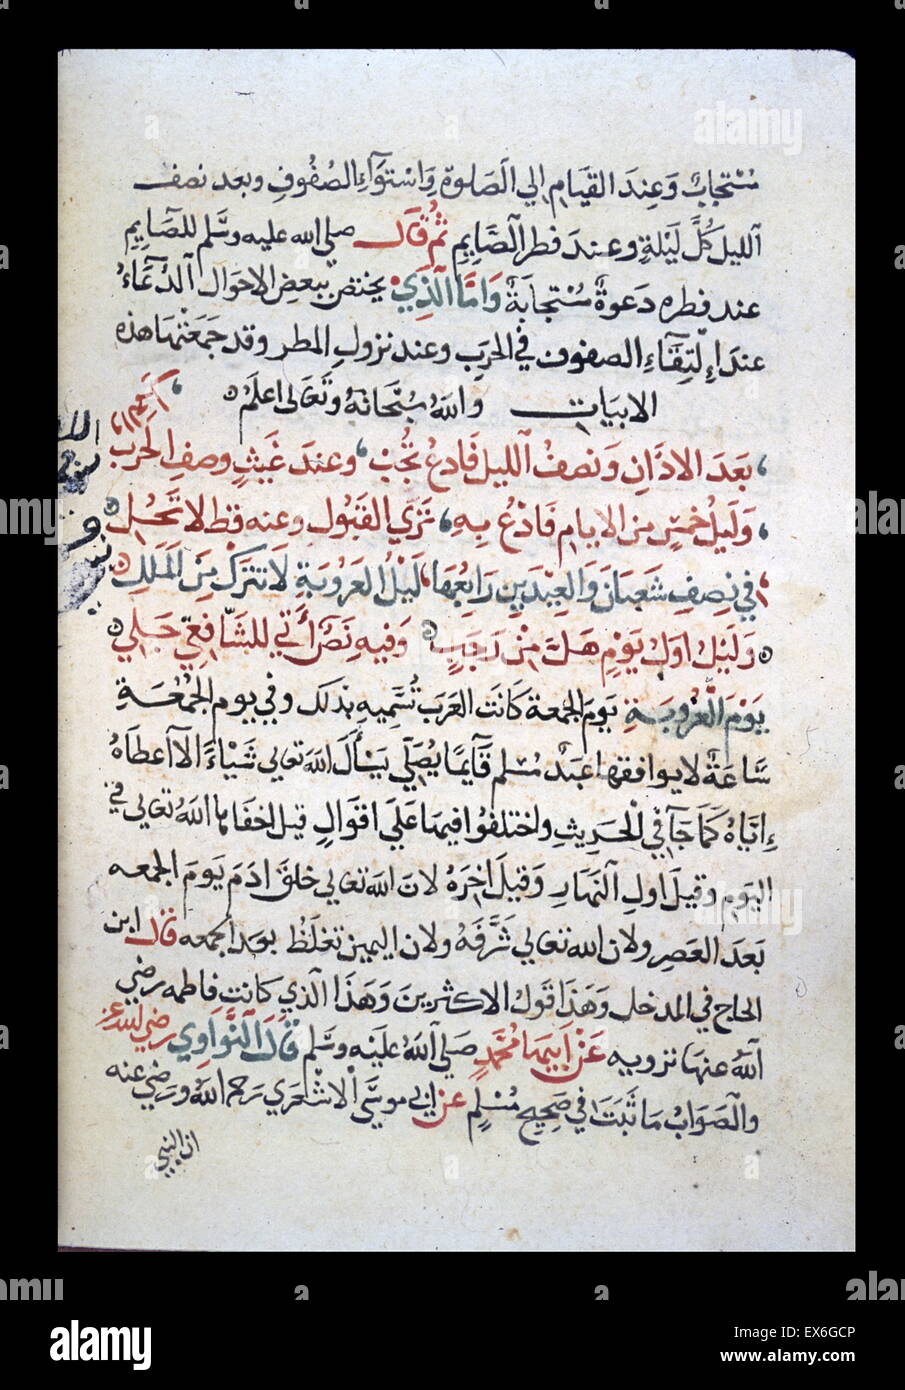 مُسْتجابٌ وَعِندَ القيَامِ الي الصَلوة وَاسْتوَآءِ الصُفُوفِ وبعد نصف
الليل كُلَّ لَيْلَةٍ وعندَ فطرِ الصَّايِمِ ثُم قَالَ صلي الله عليه وسَّلم للصَّايِمِ
عند فطره دَعوةٌ مُسْتجابَةٌ وَامَّا الذِيْ يختص ببعض الاحوال الدُعَّاءُ
عندَ اِلْتِقَآءِ الصفوف في الحربِ وعند نزولِ المطر وقد جمَعْتُها هذه
الابيَات واللهُ سُبْحَانَهُ وَتَعَالى اعلمُ
بَعدَ الاذَانِ وَنصفُ الليل فَادعُ تُجَبْ وعندَ غيثٍ وصفِ الحَرب
وَليلُ خمسٍ من الايام فَادْعُ بهِ تري القبُول وعنه قط لا تَحُل
في نِصفِ شعبَانَ وَالعِيْدَينِ رَابعُهَا ليْلُ العَروُبةِ لا تترك مِنَ المَلَلِ
وَليْلُ اولُ يَوْمٍ هَلَّ مْن رَجَبٍ وَفيهِ نَصٌ أتَي للشَّافعيّ جَلي
يَوْمَ الْعُروبَةِ يَوَمَ الجمعة كَانَت العَرَب تُسَمِّيهِ بذلك وفي يوم الجُمُعَةِ
سَّاعَةٌ لا يوافقها عَبدٌ مُسْلم قَآيمًا يُصَلّي يَسْأَل اللهَ تعالي شَيْاءً الا اعطَاهُ
اِيَّاهُ كَمَا جَآ في الحَديثِ واختلفُوا فيهَا عَلَي اقوَالٍ قيل اخفَاهَا اللهُ تعَالي في
اليَوم وقيلَ اولِ النَهارِ وَقيلَ اخِرَهُ لانَ اللهَ تعالي خَلقَ ادَمَ يَومَ الجمعه
بَعدَ العَصِر ولان الله تعَالي شَرَّفَهُ ولان اليمينَ تغلَظُ بَعد الجمعه قال ابن
الحاج في المدخل وَهَذَا قَولُ الاكثرينَ وَهَذَا الذي كَانَت فاطمه رضي
اللهُ عنهَا ترويه عَنْ اَبيهَا مُحَمَّدٍ صَلي اللهُ عَليْهِ وسَلَّم قَالَ النَّوَاوِي رضي الله عنه
وَالصَوَابُ مَا ثَبَتَ في صَحِيحِ مُسْلِمٍ عَن ابي موسَى الاشْعَري رَحمهُ اللهُ وَرَضِيَ عنه
ان النبي
alamy
alamy stock photo
EX6GCP
www.alamy.com